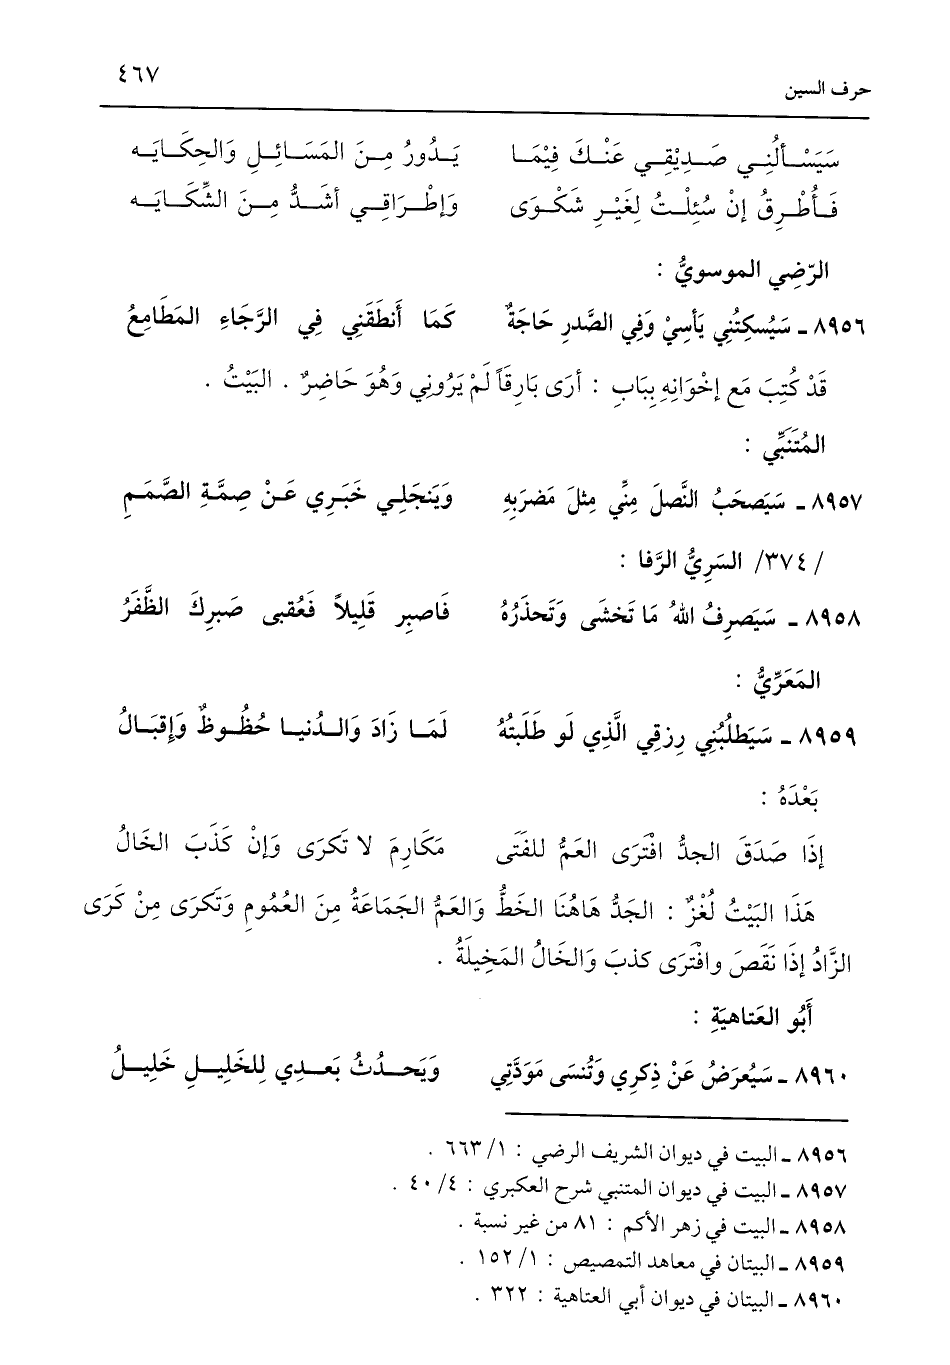 حرف السين ٤٦٧
سَيَسْأَلُنِي صَدِيْقِي عَنْكَ فِيْمَا يَدُورُ مِنَ المَسَائِلِ وَالحِكَايَه
فَأُطْرِقُ إنْ سُئِلْتُ لِغَيْرِ شَكْوَى وَإطْرَاقِي أشَدُّ مِنَ الشِّكَايَه
الرّضِي الموسويُّ :
٨٩٥٦ ـ سَيُسكِتُنِي يَأسِيْ وَفِي الصَّدرِ حَاجَةٌ كَمَا أَنطَقَنِي فِي الرَّجَاءِ المَطَامِعُ
قَدْ كُتِبَ مَع إخْوَانِهِ بِبَابِ : أرَى بَارِقَاً لَمْ يَرُونِي وَهُوَ حَاضِرٌ . البَيْتُ .
المُتَنَبِّي :
٨٩٥٧ ـ سَيَصحَبُ النَّصلَ مِنِّي مِثلَ مَضرَبِهِ وَيَنجَلِي خَبَرِي عَنْ صِمَّةِ الصَّمَمِ
/ ٣٧٤/ السَرِيُّ الرَّفا :
٨٩٥٨ ـ سَيَصرِفُ اللهُ مَا تَخشَى وَتَحذَرُهُ فَاصبِر قَلِيلاً فَعُقبى صَبرِكَ الظَّفَرُ
المَعَرِّيُّ :
٨٩٥٩ ـ سَيَطلُبُنِي رِزقِي الَّذِي لَو طَلَبتُهُ لَمَا زَادَ وَالدُنيا حُظُوظٌ وَإِقبَالُ
بَعْدَهُ :
إذَا صَدَقَ الجدُّ افْتَرَى العَمُّ للفَتَى مَكَارِمَ لا تَكرَى وَإنْ كَذَبَ الخَالُ
هَذَا البَيْتُ لُغْزٌ : الجَدُّ هَاهُنَا الخَطُّ وَالعَمُّ الجَمَاعَةُ مِنَ العُمُومِ وَتَكرَى مِنْ كَرَى
الزَّادُ إذَا نَقَصَ وافْتَرَى كذبَ وَالخَالُ المَخِيلَةُ .
أَبُو العَتاهيَةِ :
٨٩٦٠ ـ سَيُعرَضُ عَنْ ذِكرِي وَتُنسَى مَوَدَّتِي وَيَحدُثُ بَعدِي لِلخَلِيلِ خَلِيلُ
٨٩٥٦ ـ البيت في ديوان الشريف الرضي : ١/ ٦٦٣ .
٨٩٥٧ ـ البيت في ديوان المتنبي شرح العكبري : ٤/ ٤٠ .
٨٩٥٨ ـ البيت في زهر الأكم : ٨١ من غير نسبة .
٨٩٥٩ ـ البيتان في معاهد التمصيص : ١/ ١٥٢ .
٨٩٦٠ ـ البيتان في ديوان أبي العتاهية : ٣٢٢ .